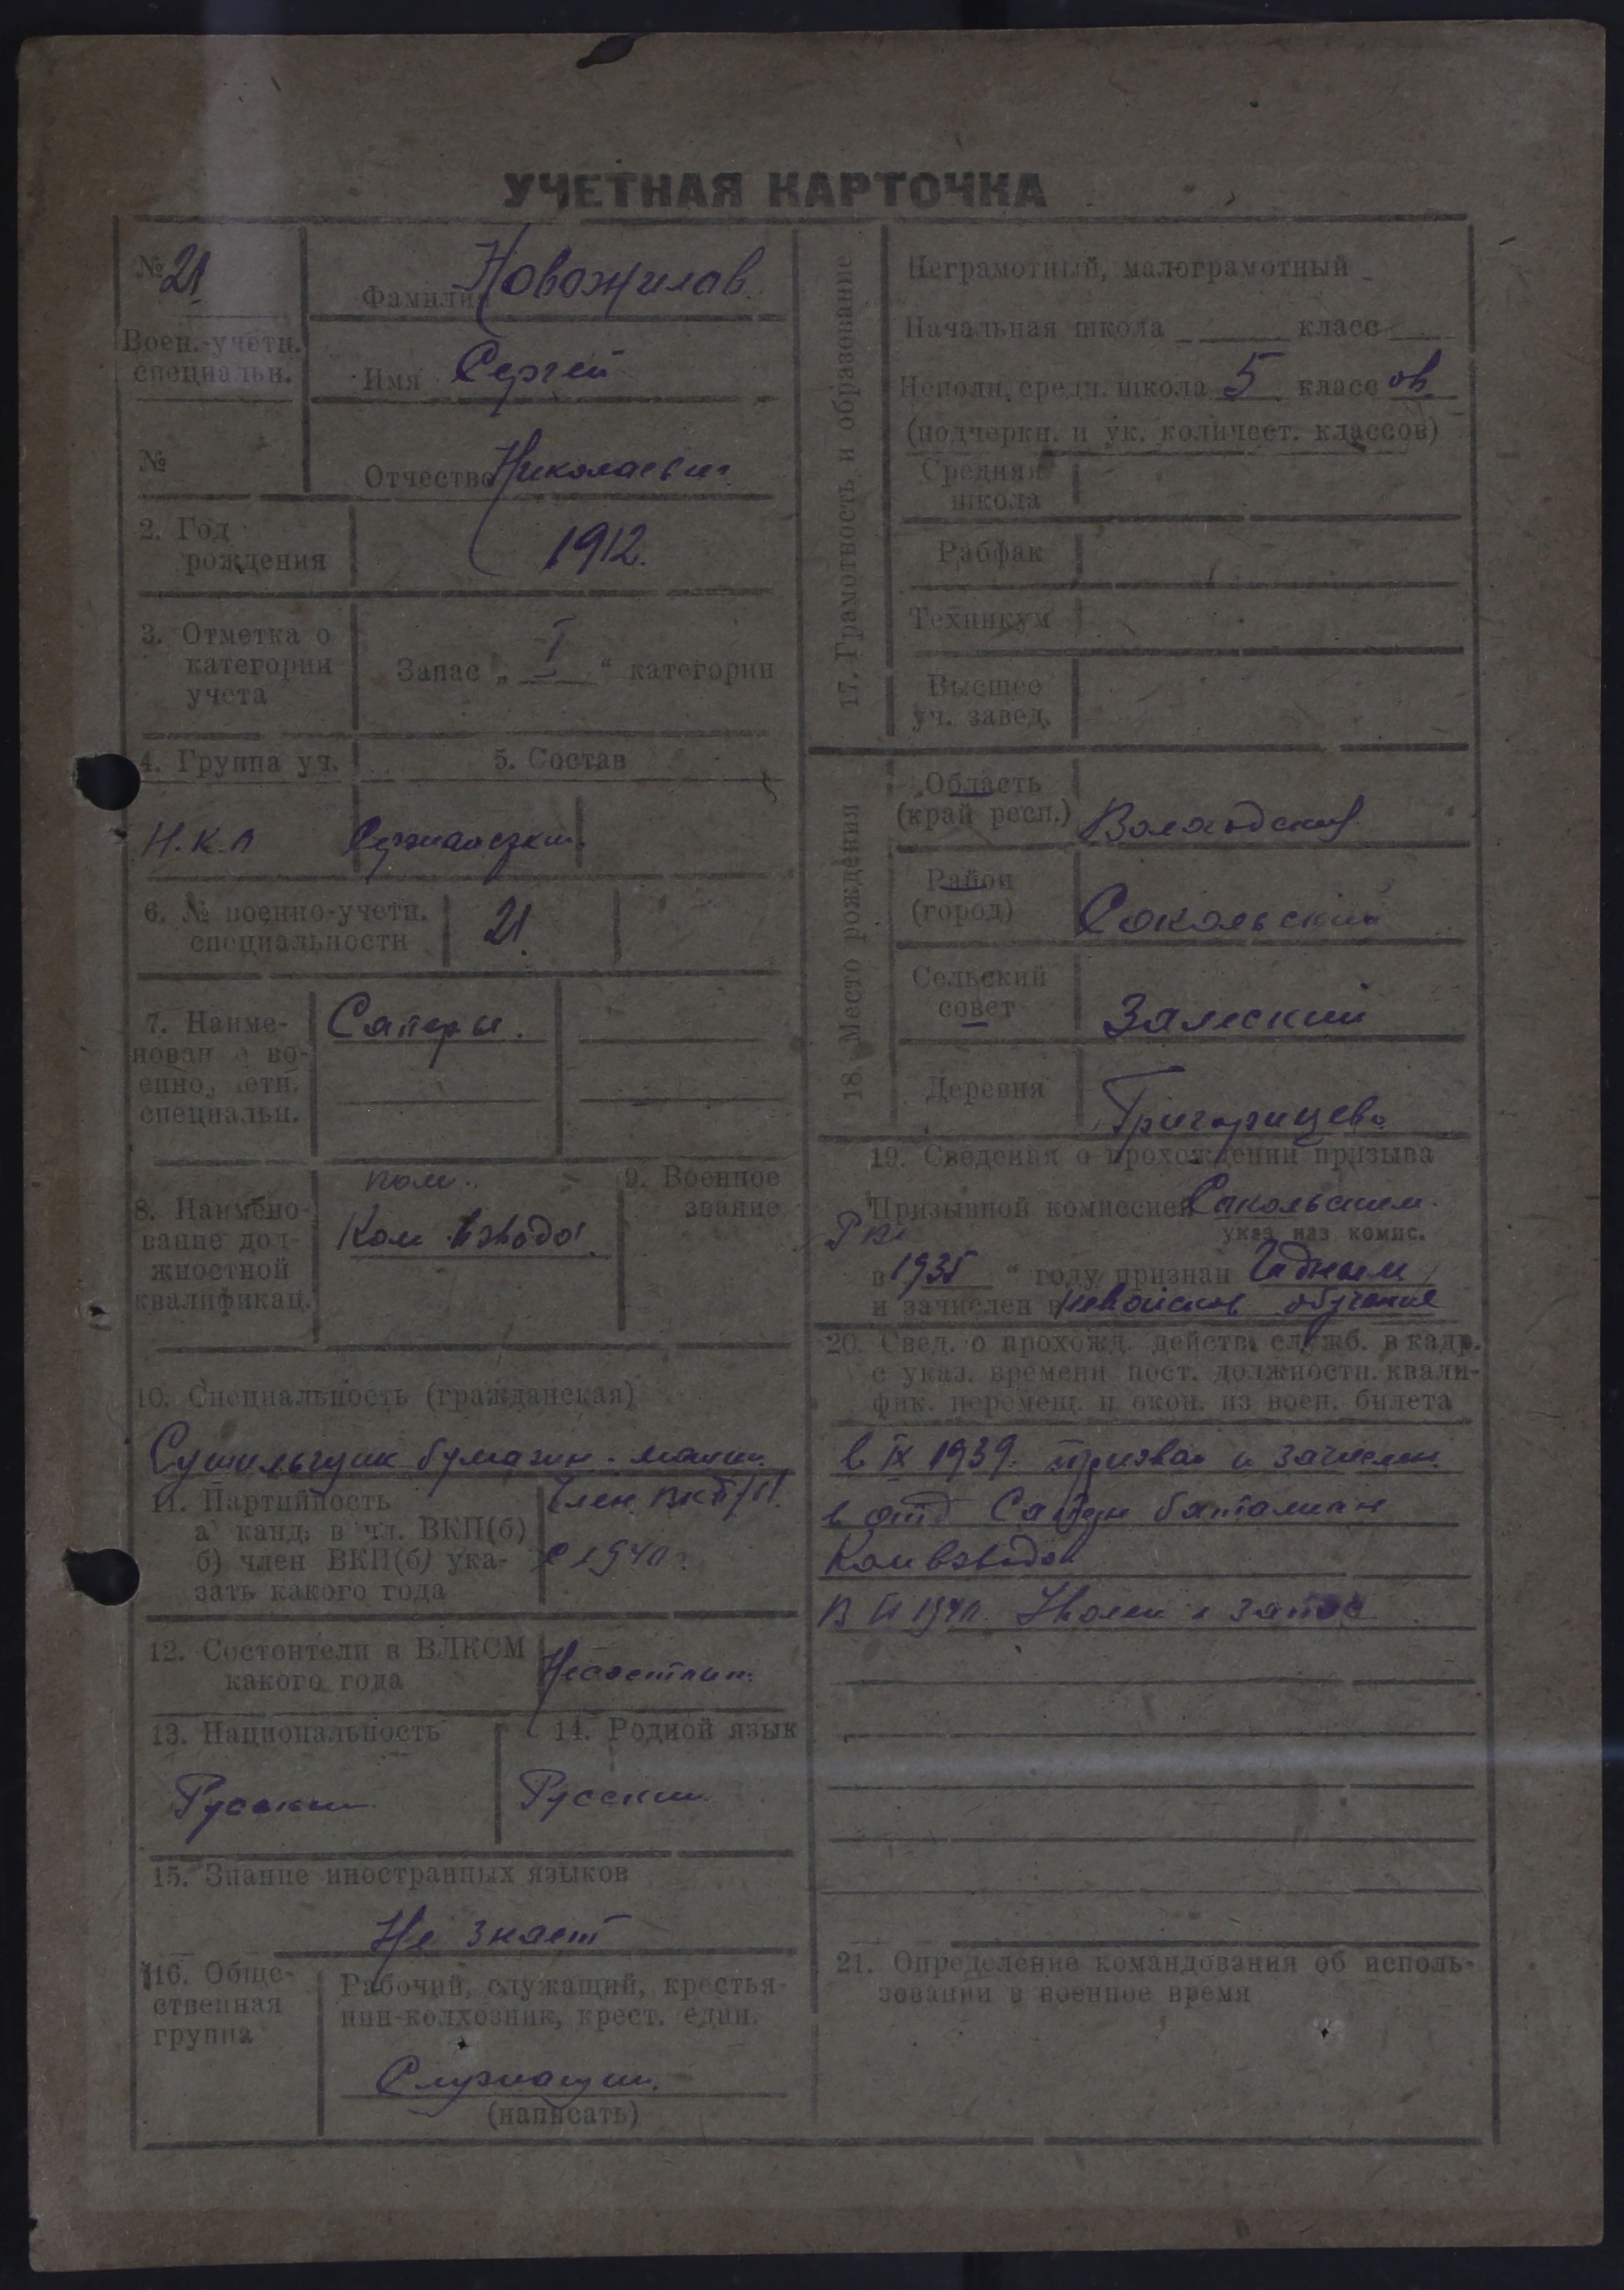 УЧЕТНАЯ КАРТОЧКА
№ 21
Воен.-учетн.
специальн.
№
Фамилия Новожилов
Имя Сергей
Отчество Николаевич
2. Год
рождения
1912.
3. Отметка о
категории
учета
Запас „ I “ категории
4. Группа уч.
5. Состав
Н.К.А
6. № военно-учетн.
специальности
21
7. Наиме-
нован е во-
енно, етн.
специальн.
Саперы.
8. Наимено-
вание дол-
жностной
квалификац.
пом.
Ком взвода
9. Военное
звание
10. Специальность (гражданская)
Сушильщик бумагин. машин.
11. Партийность
а) канд. в чл. ВКП(б)
б) член ВКП(б) ука-
зать какого года
Член ВКП/б/.
с 1940 г.
12. Состоит ли в ВЛКСМ
какого года
Несостоит.
13. Национальность
Русский
14. Родной язык
Русский
15. Знание иностранных языков
Не знает
16. Обще-
ственная
группа
Рабочий, служащий, крестья-
нин-колхозник, крест. един.
Служащий.
(написать)
17. Грамотность и образование
Неграмотный, малограмотный
Начальная школа класс
Неполн. средн. школа 5 класс ов
(подчеркн. и ук. количест. классов)
Средняя
школа
Рабфак
Техникум
Высшее
уч. завед.
18. Место рождения
Область
(край респ.)
Вологодский
Район
(город)
Сокольский
Сельский
совет
Залеский
Деревня
Григорицево
19. Сведения о прохождении призыва
Призывной комиссией Сокольским
указ. наз комис.
РВК
в 1935 “ году признан Годным
и зачислен в невойсков. обучение
20. Свед. о прохожд. действ. служб. в кадр.
с указ. времени пост. должностн. квали-
фик. перемещ. и окон. из воен. билета
в IX 1939. призван и зачислен
в отд Сапер батальан
Ком взвода
В 1940. Уволен в запас
21. Определение командования об исполь-
зовании в военное время